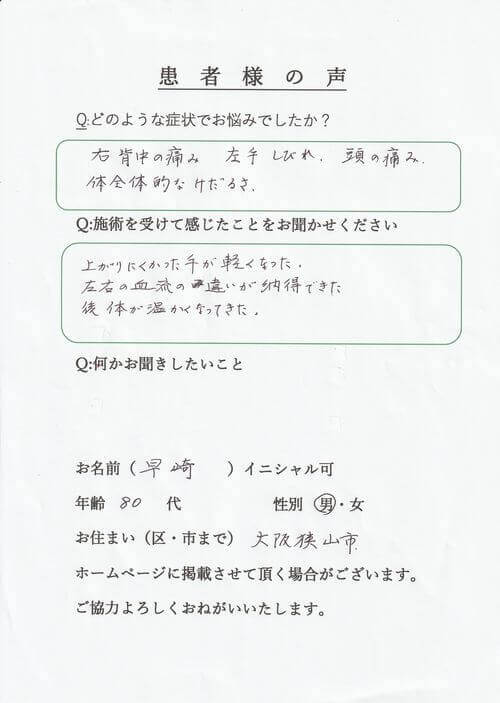 患者様の声
Q:どのような症状でお悩みでしたか？
右背中の痛み 左手しびれ. 頭の痛み.
体全体的なけだるさ.
Q:施術を受けて感じたことをお聞かせください
上がりにくかった手が軽くなった.
左右の血流の違いが納得できた
後体が温かくなってきた.
Q:何かお聞きしたいこと
お名前（早崎）イニシャル可
年齢 80 代 性別 男・女
お住まい（区・市まで）大阪狭山市
ホームページに掲載させて頂く場合がございます。
ご協力よろしくおねがいいたします。